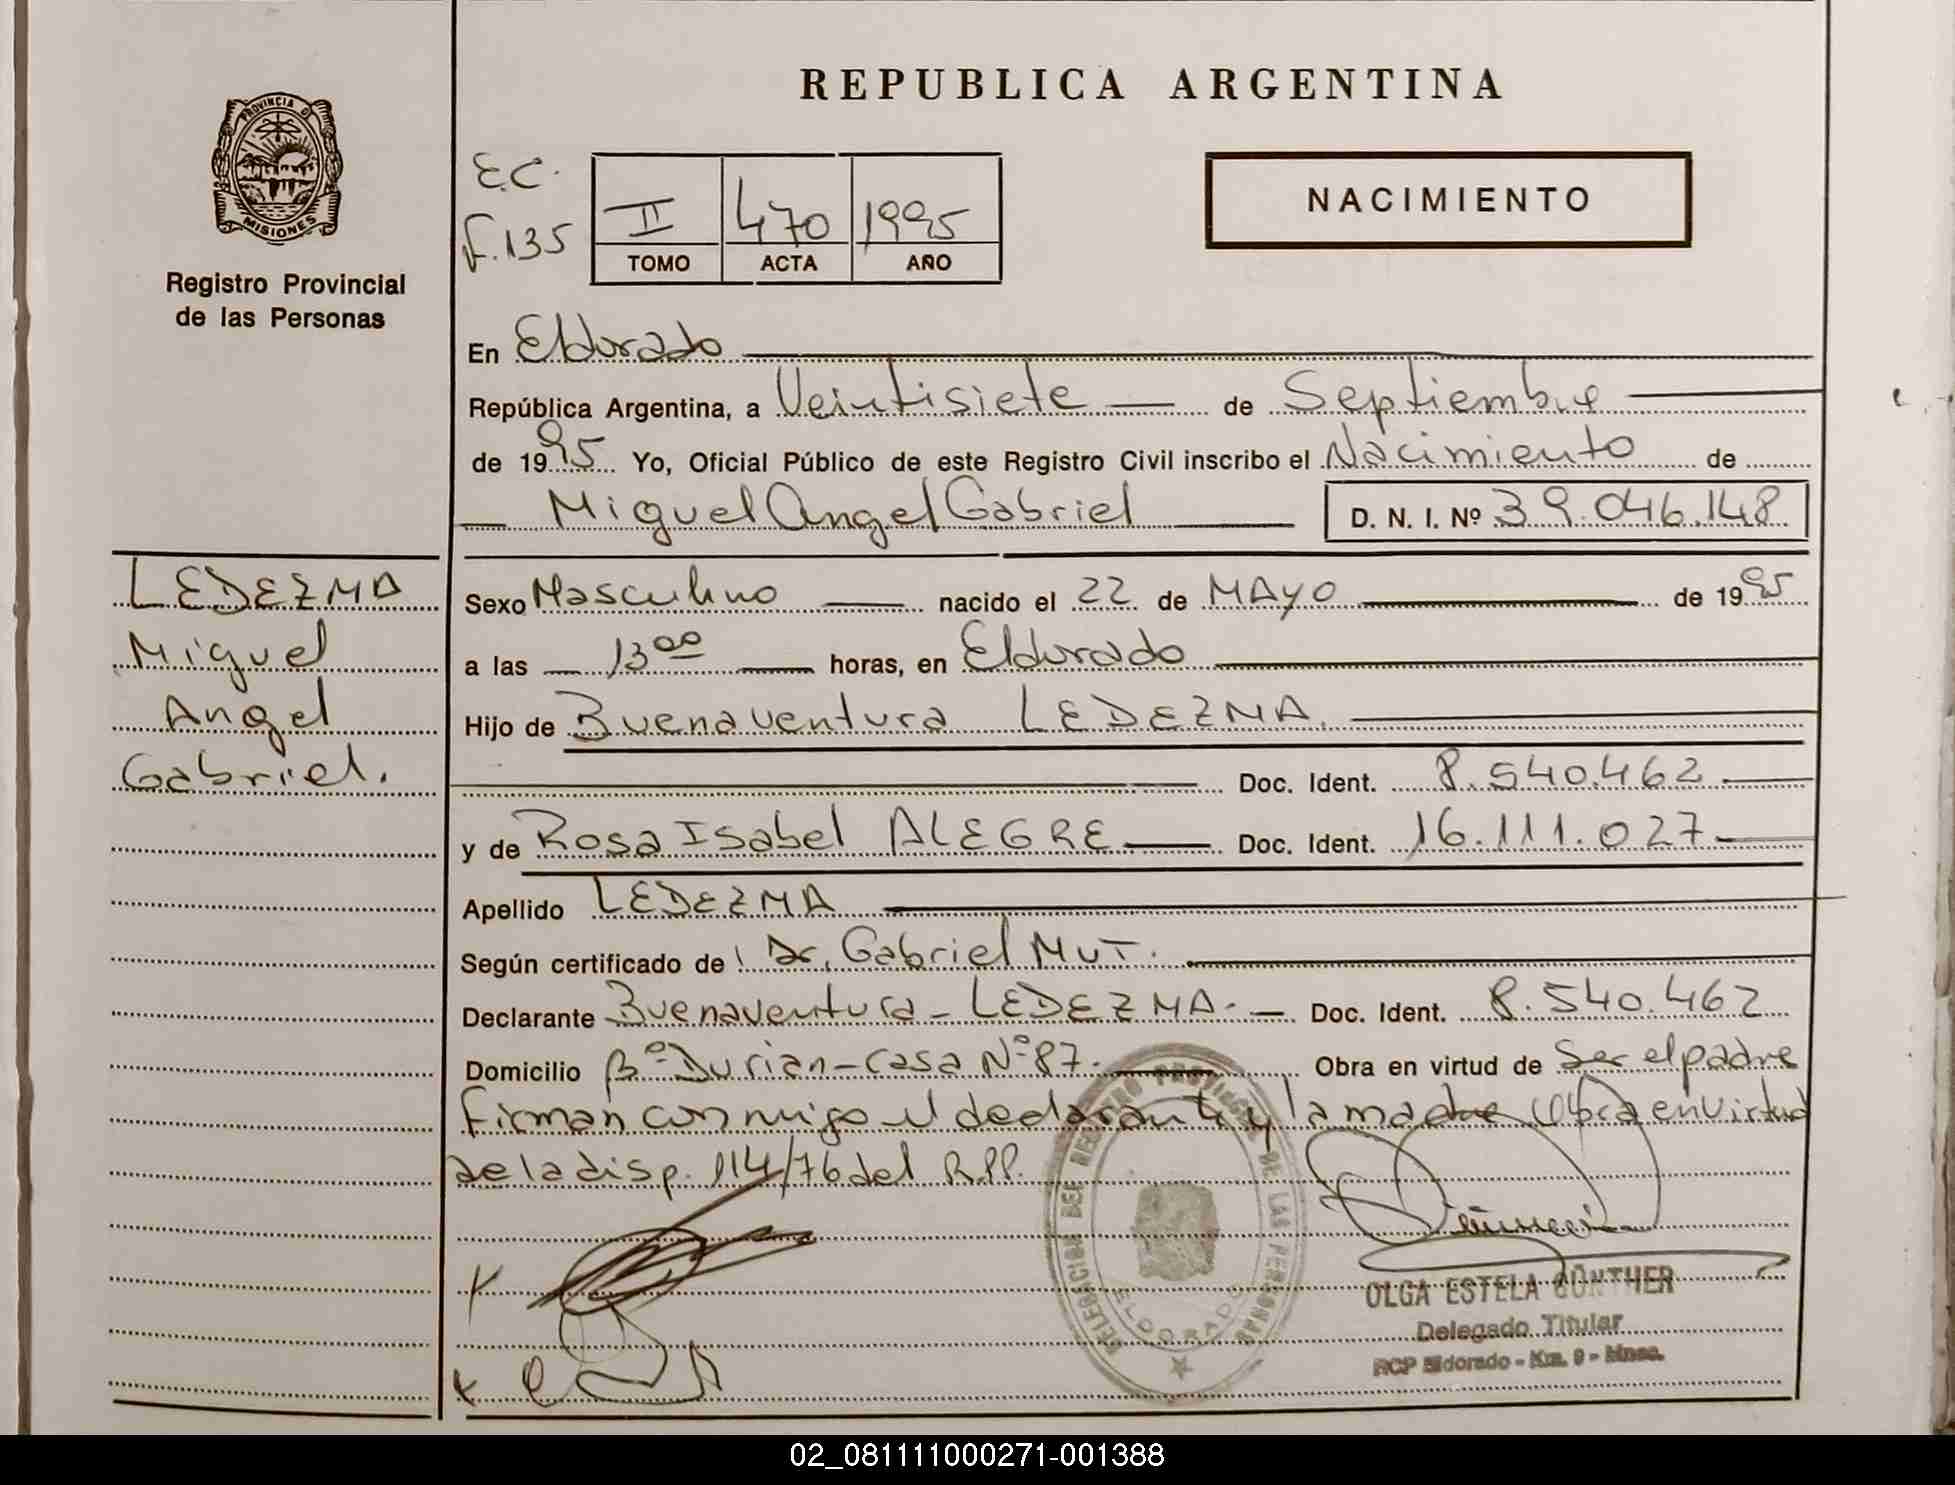 REPUBLICA ARGENTINA
PROVINCIA D
MISIONES
Registro Provincial
de las Personas
E.C.
F.135
II 470 1995
TOMO ACTA AÑO
NACIMIENTO
En Eldorado
República Argentina, a Veintisiete de Septiembre
de 1995 Yo, Oficial Público de este Registro Civil inscribo el Nacimiento de
Miguel Angel Gabriel D. N. I. Nº 39.046.148
LEDEZMA
Miguel
Angel
Gabriel.
Sexo Masculino nacido el 22 de MAYO de 1995
a las 13 00 horas, en Eldorado
Hijo de Buenaventura LEDEZMA.
Doc. Ident. 8.540.462
y de Rosa Isabel ALEGRE Doc. Ident. 16.111.027
Apellido LEDEZMA
Según certificado de Dr. Gabriel MUT.
Declarante Buenaventura - LEDEZMA.- Doc. Ident. 8.540.462
Domicilio Bº Durian-casa Nº 87.- Obra en virtud de Ser el padre
Firman conmigo el declarante y la madre Obra en virtud
de la disp. 114/76 del R.P.P.
DELEGACION DEL REGISTRO PROVINCIAL DE LAS PERSONAS
ELDORADO
OLGA ESTELA GÜNTHER
Delegado Titular
RCP Eldorado - Km. 9 - Mnes.
02_081111000271-001388